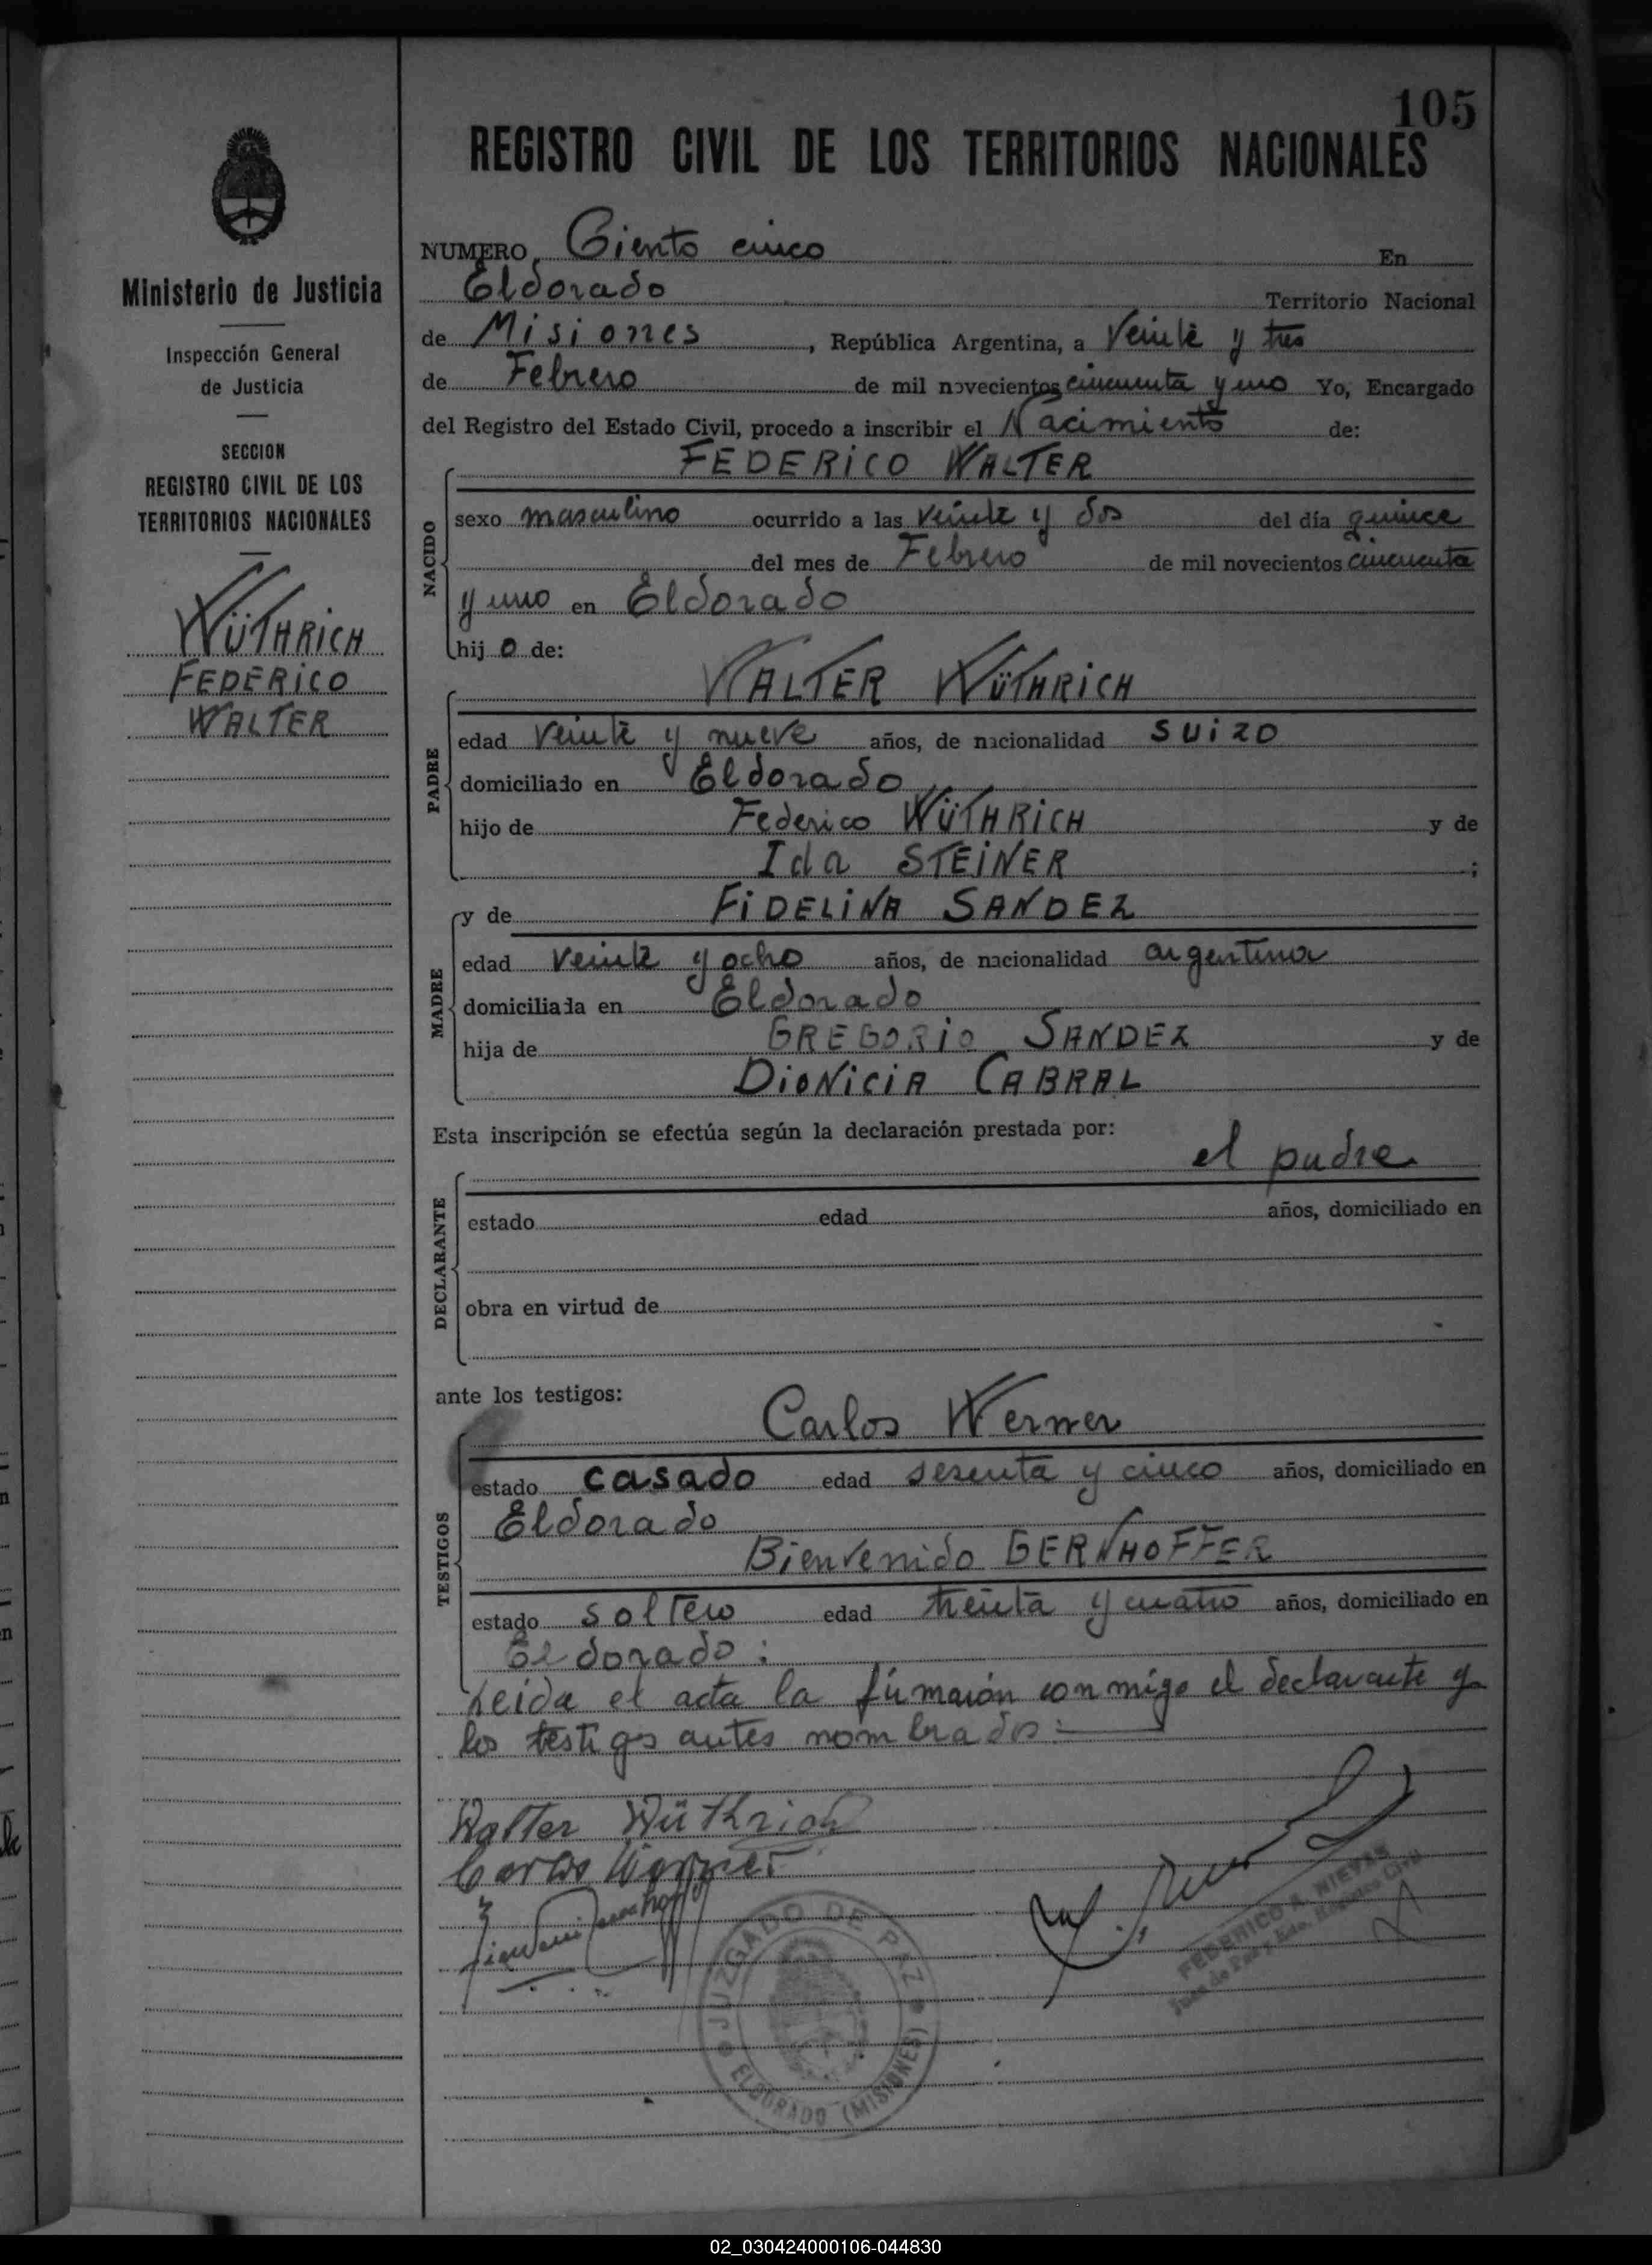 105
REGISTRO CIVIL DE LOS TERRITORIOS NACIONALES
Ministerio de Justicia
Inspección General
de Justicia
SECCION
REGISTRO CIVIL DE LOS
TERRITORIOS NACIONALES
WÜTHRICH
FEDERICO
WALTER
NUMERO Ciento cinco En
Eldorado Territorio Nacional
de Misiones, República Argentina, a Veinte y tres
de Febrero de mil novecientos cincuenta y uno Yo, Encargado
del Registro del Estado Civil, procedo a inscribir el Nacimiento de:
FEDERICO WALTER
NACIDO
sexo masculino ocurrido a las veinte y dos del día quince
del mes de Febrero de mil novecientos cincuenta
y uno en Eldorado
hijo de:
WALTER WÜTHRICH
PADRE
edad veinte y nueve años, de nacionalidad suizo
domiciliado en Eldorado
hijo de Federico WÜTHRICH y de
Ida STEINER ;
y de FIDELINA SANDEZ
MADRE
edad veinte y ocho años, de nacionalidad argentina
domiciliada en Eldorado
hija de GREGORIO SANDEZ y de
DIONICIA CABRAL
Esta inscripción se efectúa según la declaración prestada por:
el padre
DECLARANTE
estado edad años, domiciliado en
obra en virtud de
ante los testigos:
Carlos Werner
TESTIGOS
estado casado edad sesenta y cinco años, domiciliado en
Eldorado
Bienvenido GERNHOFFER
estado soltero edad treinta y cuatro años, domiciliado en
Eldorado:
Leida el acta la firmaron conmigo el declarante y
los testigos antes nombrados:
Walter Wüthrich
Carlos Werner
JUZGADO DE PAZ
ELDORADO (MISIONES)
FEDERICO A. NIEVAS
Juez de Paz y Edo. Registro Civil
02_030424000106-044830